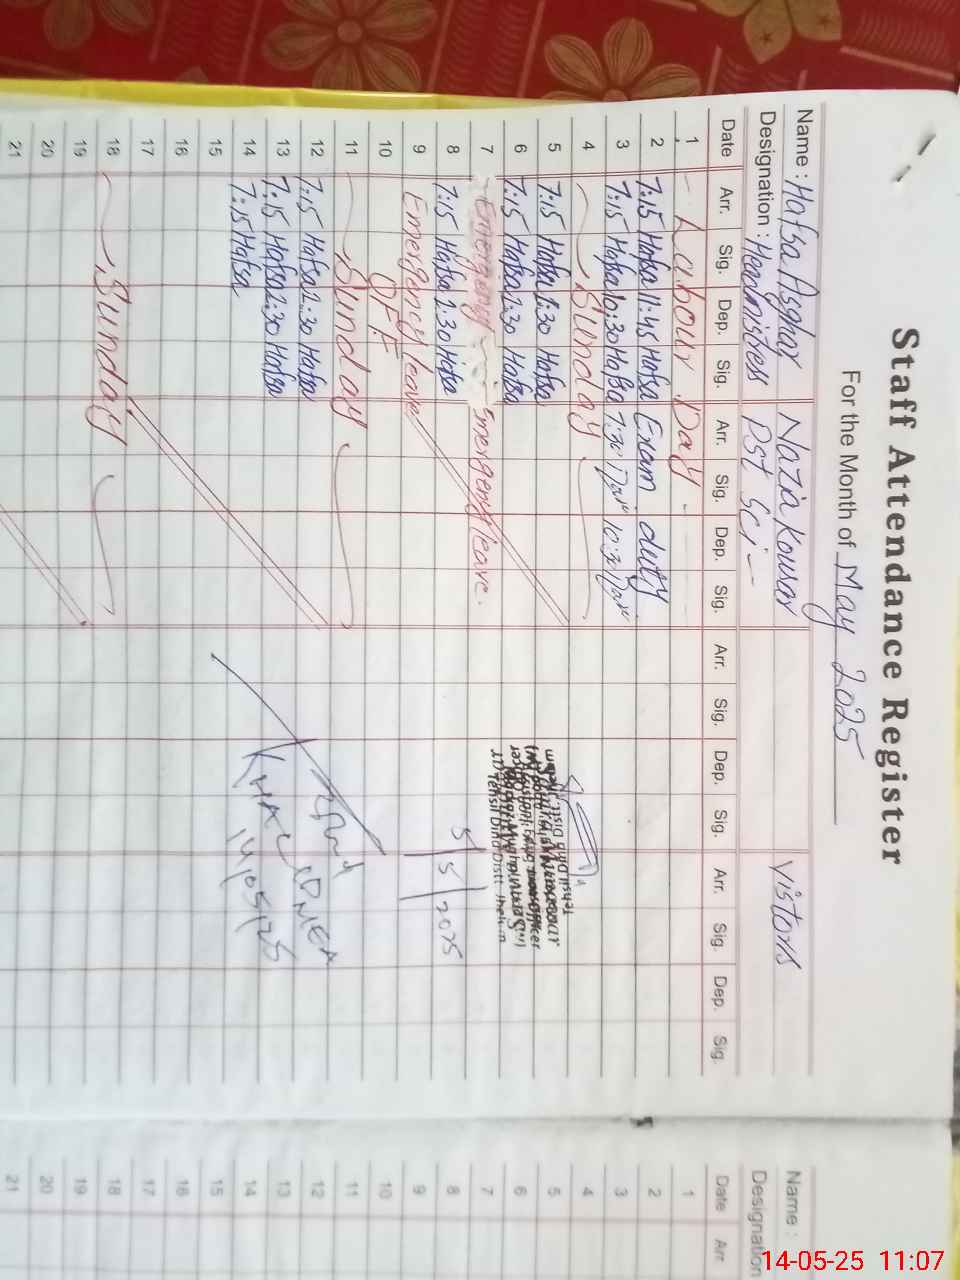 Staff Attendance Register
For the Month of May 2025
Name : Hafsa Asghar Nazia Kousar Vistors
Designation : Headmistress PST Sci -
Date Arr. Sig. Dep. Sig. Arr. Sig. Dep. Sig. Arr. Sig. Dep. Sig. Arr. Sig. Dep. Sig.
1 Labour Day
2 7:15 Hafsa 11:45 Hafsa Exam duty
3 7:15 Hafsa 10:30 Hafsa 7:30 10:30
4 Sunday
5 7:15 Hafsa 1:30 Hafsa
6 7:15 Hafsa 1:30 Hafsa
7 Emergency Emergency leave.
8 7:15 Hafsa 1:30 Hafsa 5/5/2025
9 Emergency leave
10 OFF
11 Sunday
12 7:15 Hafsa 1:30 Hafsa
13 7:15 Hafsa 1:30 Hafsa
14 7:15 Hafsa 14/05/25
15
16
17
18 Sunday
19
20
21
Name :
Designation
Date Arr.
1
2
3
4
5
6
7
8
9
10
11
12
13
14
15
16
17
18
19
20
21
14-05-25 11:07